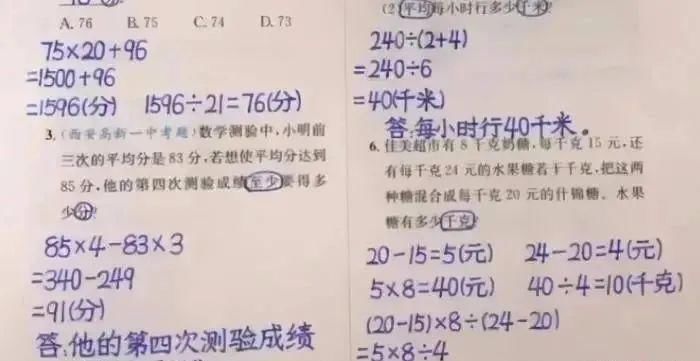 A. 76 B. 75 C. 74 D. 73
75×20+96
=1500+96
=1596(分) 1596÷21=76(分)
3. (西安高新一中考题)数学测验中,小明前
三次的平均分是 83 分,若想使平均分达到
85 分,他的第四次测验成绩至少要得多
少分?
85×4-83×3
=340-249
=91(分)
答:他的第四次测验成绩
(2)平均每小时行多少千米?
240÷(2+4)
=240÷6
=40(千米)
答:每小时行40千米。
6. 佳美超市有 8 千克奶糖,每千克 15 元,还
有每千克 24 元的水果糖若干千克,把这两
种糖混合成每千克 20 元的什锦糖。水果
糖有多少千克?
20-15=5(元) 24-20=4(元)
5×8=40(元) 40÷4=10(千克)
(20-15)×8÷(24-20)
=5×8÷4